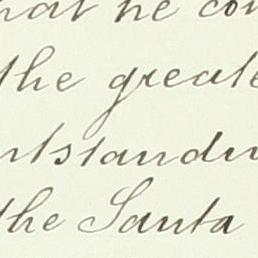 hat he con
the greate
utstandin
the Santa